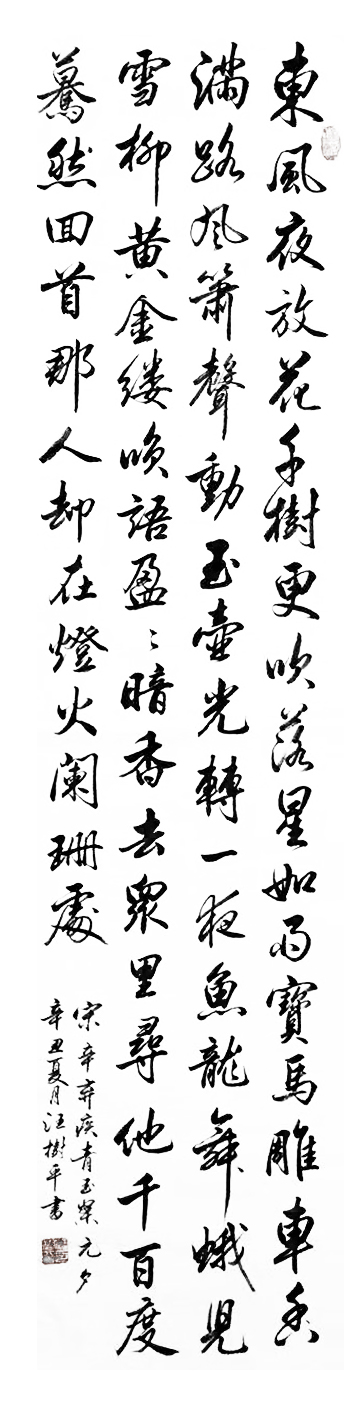 東風夜放花千樹更吹落星如雨寶馬雕車香
滿路凤簫聲動玉壺光轉一夜魚龍舞蛾兒
雪柳黄金缕咲語盈〻暗香去衆里尋他千百度
驀然回首那人却在燈火阑珊處
宋辛弃疾青玉案元夕
辛丑夏月汪樹平書